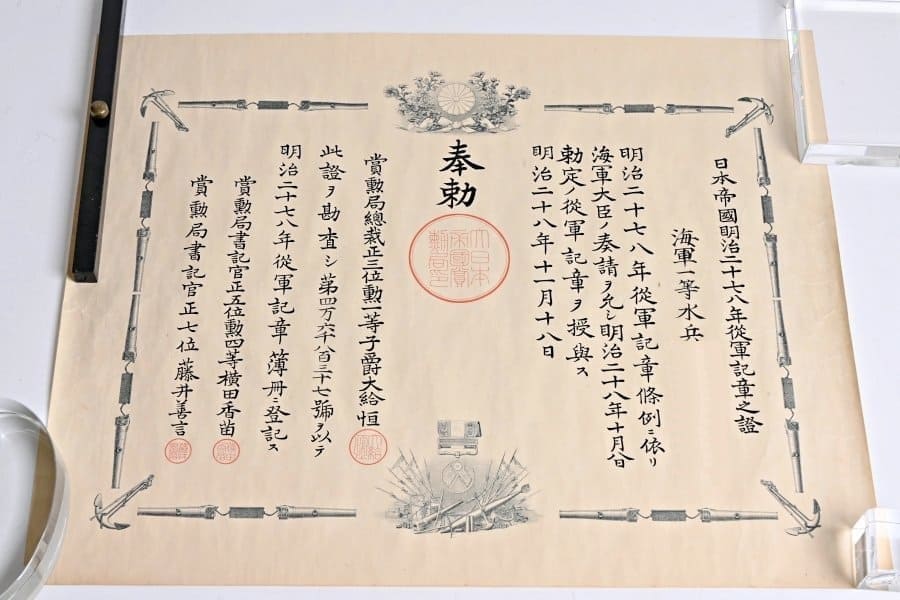 日本帝國明治二十七八年從軍記章之證
海軍一等水兵
明治二十七八年從軍記章條例ニ依リ
海軍大臣ノ奏請ヲ允シ明治二十八年十月八日
勅定ノ從軍記章ヲ授與ス
明治二十八年十一月十八日
奉勅
大日本帝國賞勲局印
賞勲局總裁正三位勲一等子爵大給恒
此證ヲ勘査シ第四万六千八百三十七號ヲ以テ
明治二十七八年從軍記章簿册ニ登記ス
賞勲局書記官正五位勲四等横田香苗
賞勲局書記官正七位藤井善言